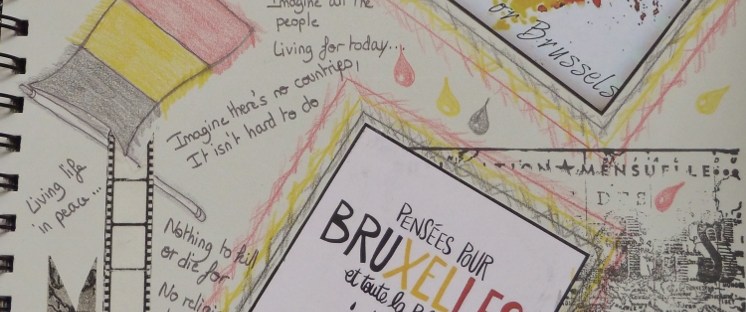 Imagine all the
people
Living for today...
or Brussels
Imagine there's no countries,
It isn't hard to do
MENSUELLE
DES
Living life
in peace...
Nothing to kill
or die for
No religi
PENSÉES POUR
BRUXELLES
et toute la